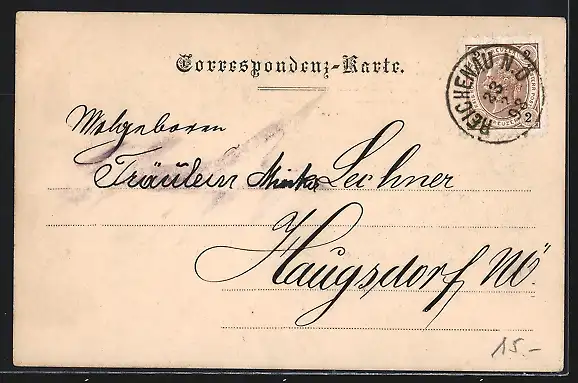 Correspondenz-Karte.
REICHENAU N.Ö
2
Wolgeboren
Fräulein Lechner
Haugsdorf NÖ.
15.-